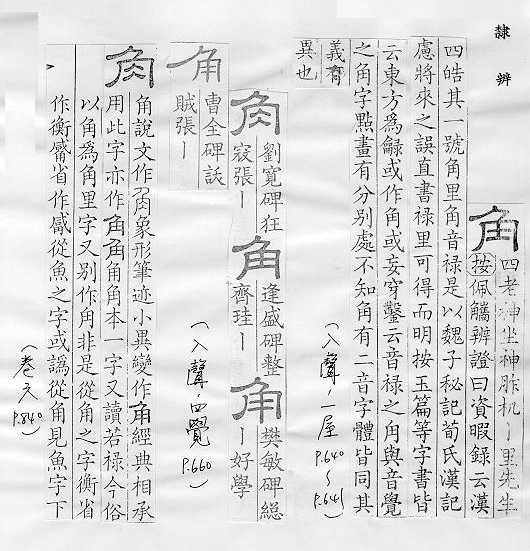 隸辨
角 四老神坐神胙机ー里先生
按佩觿辨證曰資暇錄云漢
四皓其一號角里角音祿是以魏子秘記荀氏漢記
慮將來之誤直書祿里可得而明按玉篇等字書皆
云東方為龣或作角或妄穿鑿云音祿之角與音覺
之角字點畫有分別處不知角有二音字體皆同其
義有
異也
(入聲,一屋 P.640~P.641)
角 劉寬碑狂寇張ー 角 逢盛碑整齊珪ー 角 樊敏碑総ー好學
(入聲,四覺 P.660)
角 曹全碑訞賊張ー
角 角說文作𧢲象形筆迹小異變作角經典相承
用此字亦作角角角角本一字又讀若祿今俗
以角為角里字又別作甪非是從角之字衡省
作衡 省作 從魚之字或譌從角見魚字下
(卷六 P.840)